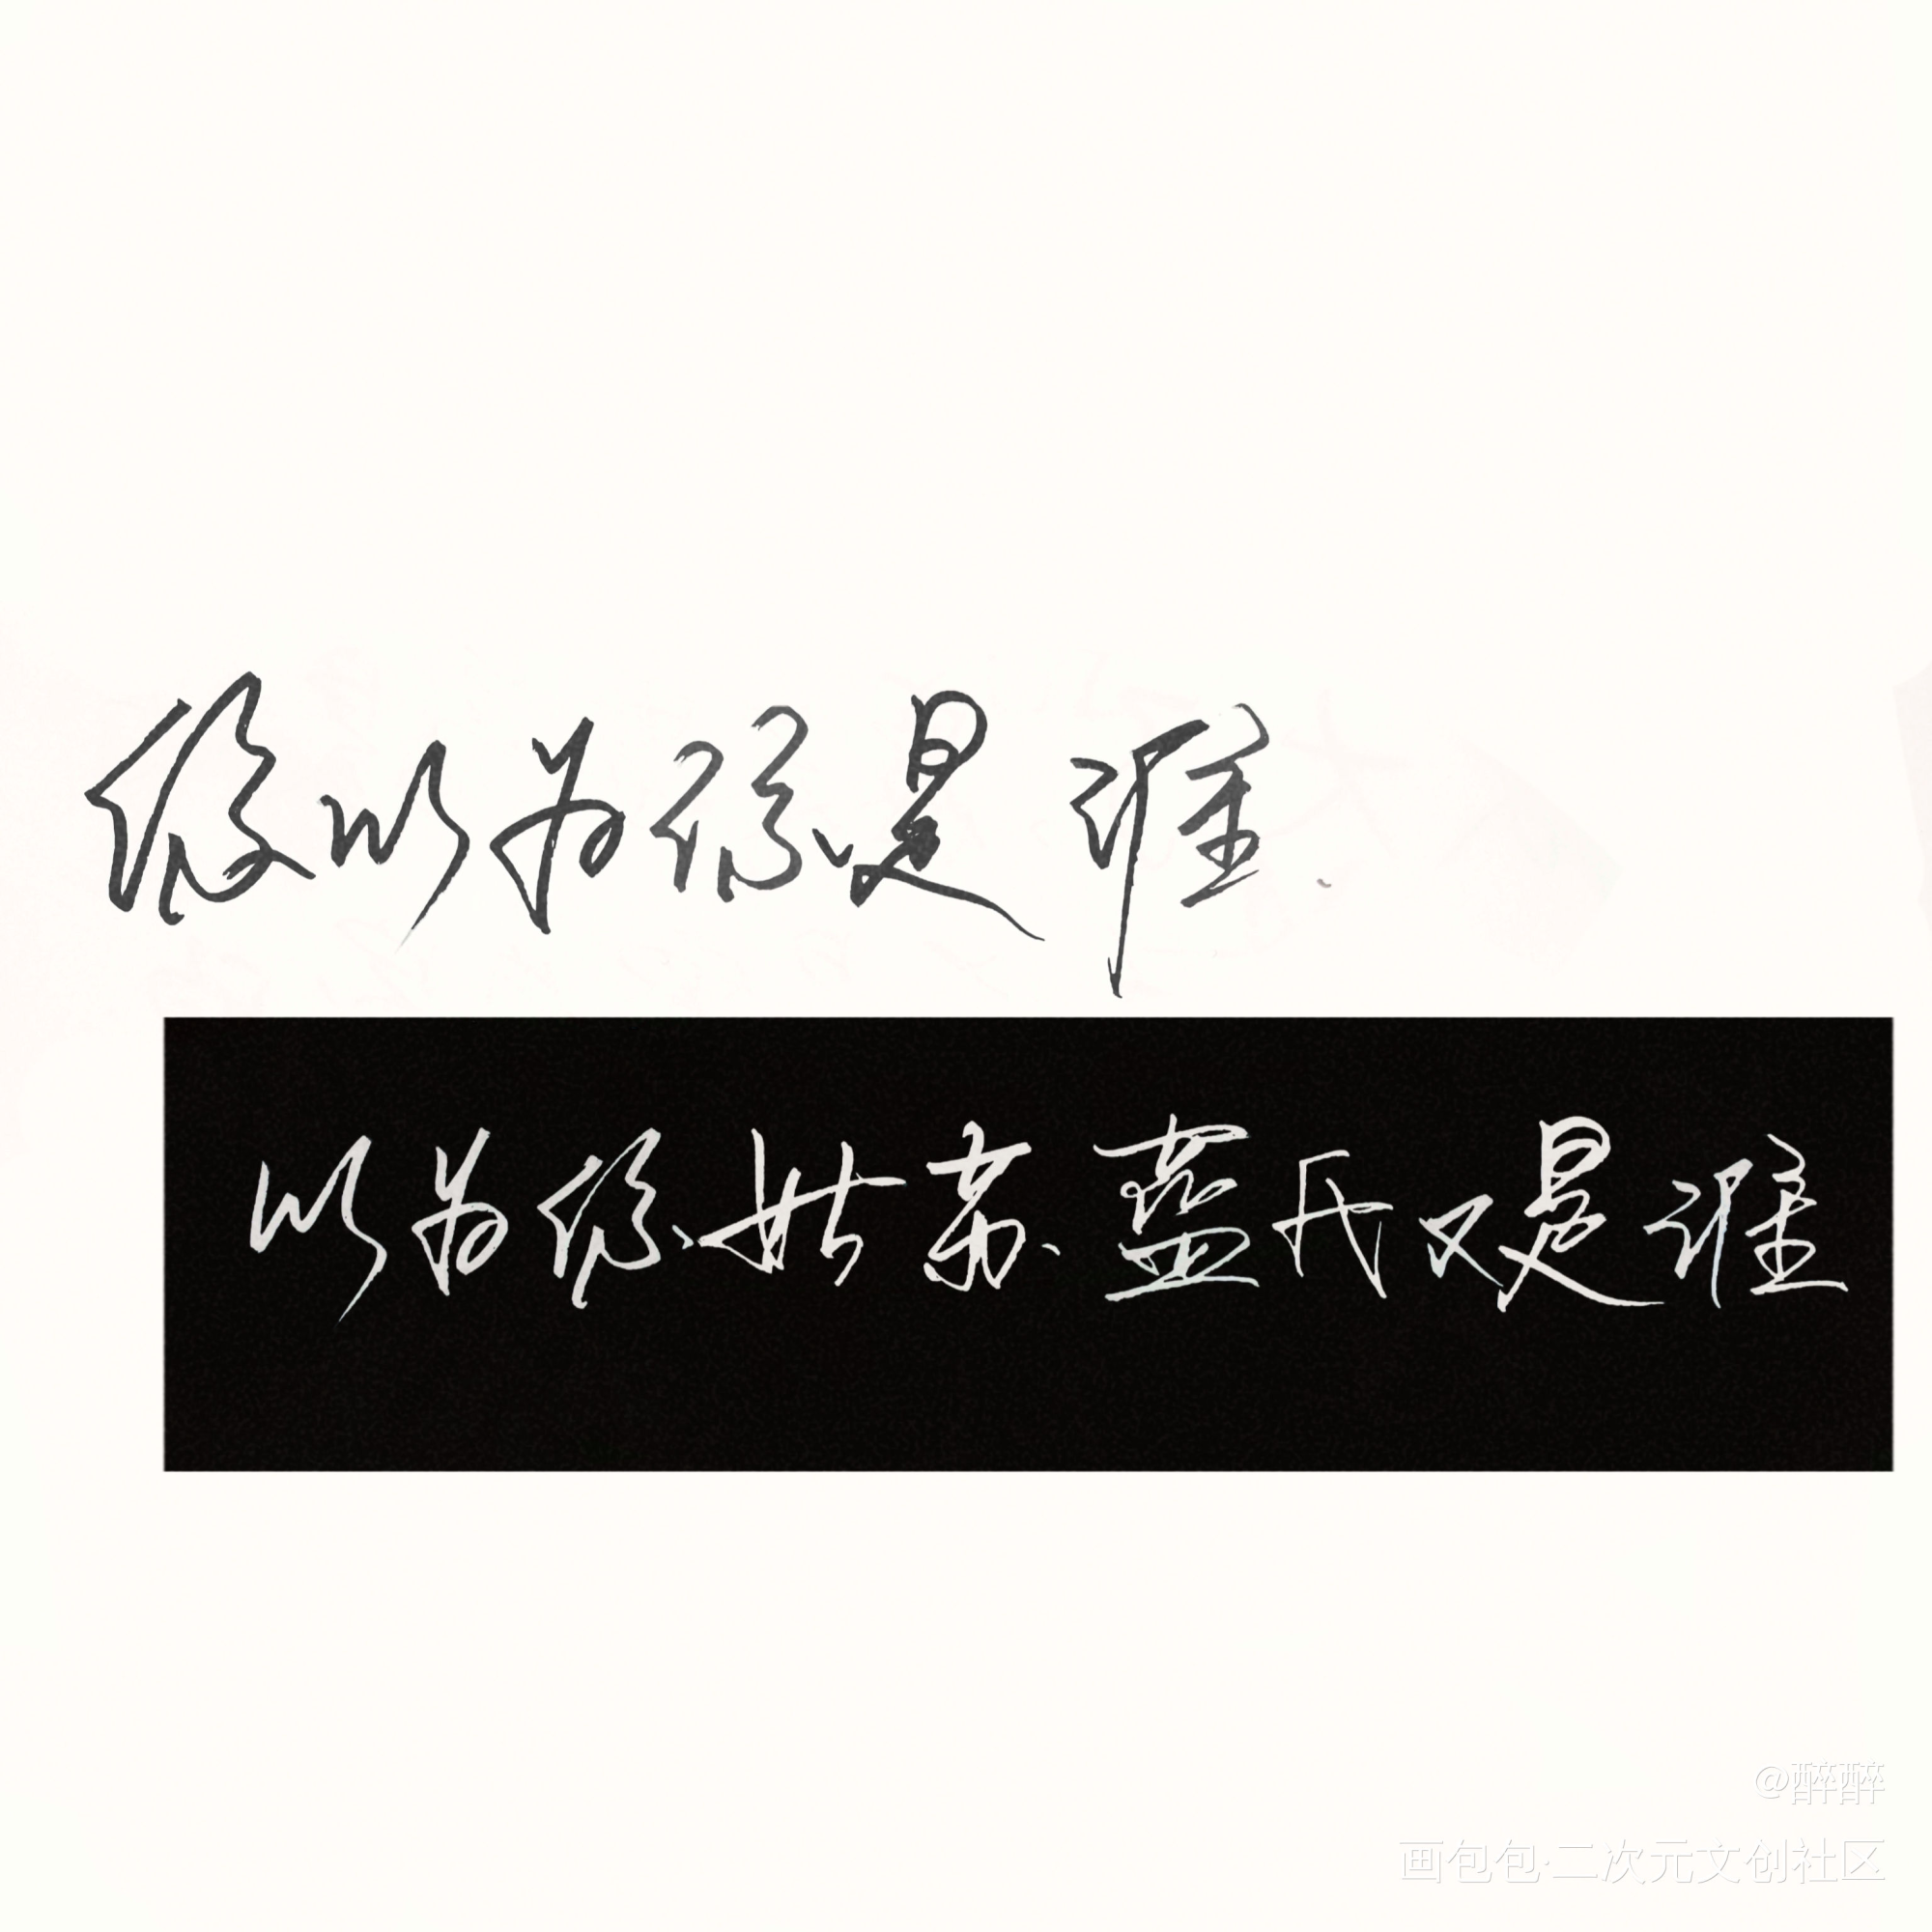 你以为你是谁
以为你姑苏蓝氏又是谁
@醉醉
画包包·二次元文创社区